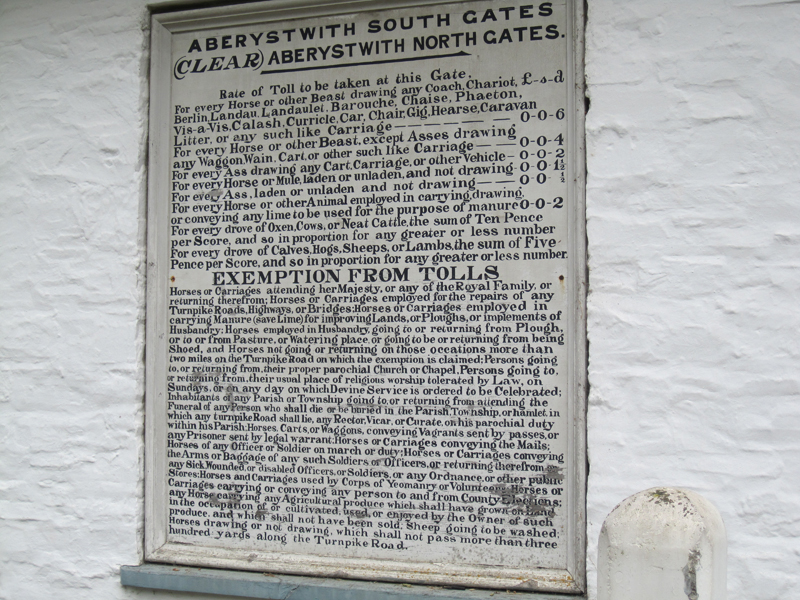 ABERYSTWITH SOUTH GATES
(CLEAR) ABERYSTWITH NORTH GATES.
Rate of Toll to be taken at this Gate.
For every Horse or other Beast drawing any Coach, Chariot, £-s-d
Berlin, Landau, Landaulet, Barouche, Chaise, Phaeton,
Vis-a-Vis, Calash, Curricle, Car, Chair, Gig, Hearse, Caravan
Litter, or any such like Carriage — — — — — 0-0-6
For every Horse or other Beast, except Asses drawing
any Waggon, Wain, Cart, or other such like Carriage — 0-0-4
For every Ass drawing any Cart, Carriage, or other Vehicle - 0-0-2
For every Horse or Mule, laden or unladen, and not drawing - 0-0-1½
For every Ass, laden or unladen and not drawing — 0-0-½
For every Horse or other Animal employed in carrying, drawing,
or conveying any lime to be used for the purpose of manure 0-0-2
For every drove of Oxen, Cows, or Neat Cattle, the sum of Ten Pence
per Score, and so in proportion for any greater or less number
For every drove of Calves, Hogs, Sheeps, or Lambs, the sum of Five
Pence per Score, and so in proportion for any greater or less number.
EXEMPTION FROM TOLLS
Horses or Carriages attending her Majesty, or any of the Royal Family, or
returning therefrom; Horses or Carriages employed for the repairs of any
Turnpike Roads, Highways, or Bridges: Horses or Carriages employed in
carrying Manure (save Lime) for improving Lands, or Ploughs, or implements of
Husbandry: Horses employed in Husbandry, going to or returning from Plough,
or to or from Pasture, or Watering place, or going to be or returning from being
Shoed, and Horses not going or returning on those occations more than
two miles on the Turnpike Road on which the exemption is claimed; Persons going
to, or returning from, their proper parochial Church or Chapel, Persons going to,
or returning from, their usual place of religious worship tolerated by Law, on
Sundays, or on any day on which Devine Service is ordered to be Celebrated;
Inhabitants of any Parish or Township going to, or returning from attending the
Funeral of any Person who shall die or be buried in the Parish, Township, or hamlet, in
which any turnpike Road shall lie, any Rector, Vicar, or Curate, on his parochial duty
within his Parish: Horses, Carts, or Waggons, conveying Vagrants sent by passes, or
any Prisoner sent by legal warrant: Horses or Carriages conveying the Mails;
Horses of any Officer or Soldier on march or duty; Horses or Carriages conveying
the Arms or Baggage of any such Soldiers or Officers, or returning therefrom
any Sick, Wounded, or disabled Officers, or Soldiers, or any Ordnance, or other public
Stores: Horses and Carriages used by Corps of Yeomanry or Volunteers: Horses or
Carriages carrying or conveying any person to and from County Elections;
any Horse carrying any Agricultural produce which shall have grown on land
in the occupation of or cultivated, used, or enjoyed by the Owner of such
produce, and which shall not have been sold. Sheep going to be washed;
Horses drawing or not drawing, which shall not pass more than three
hundred yards along the Turnpike Road.